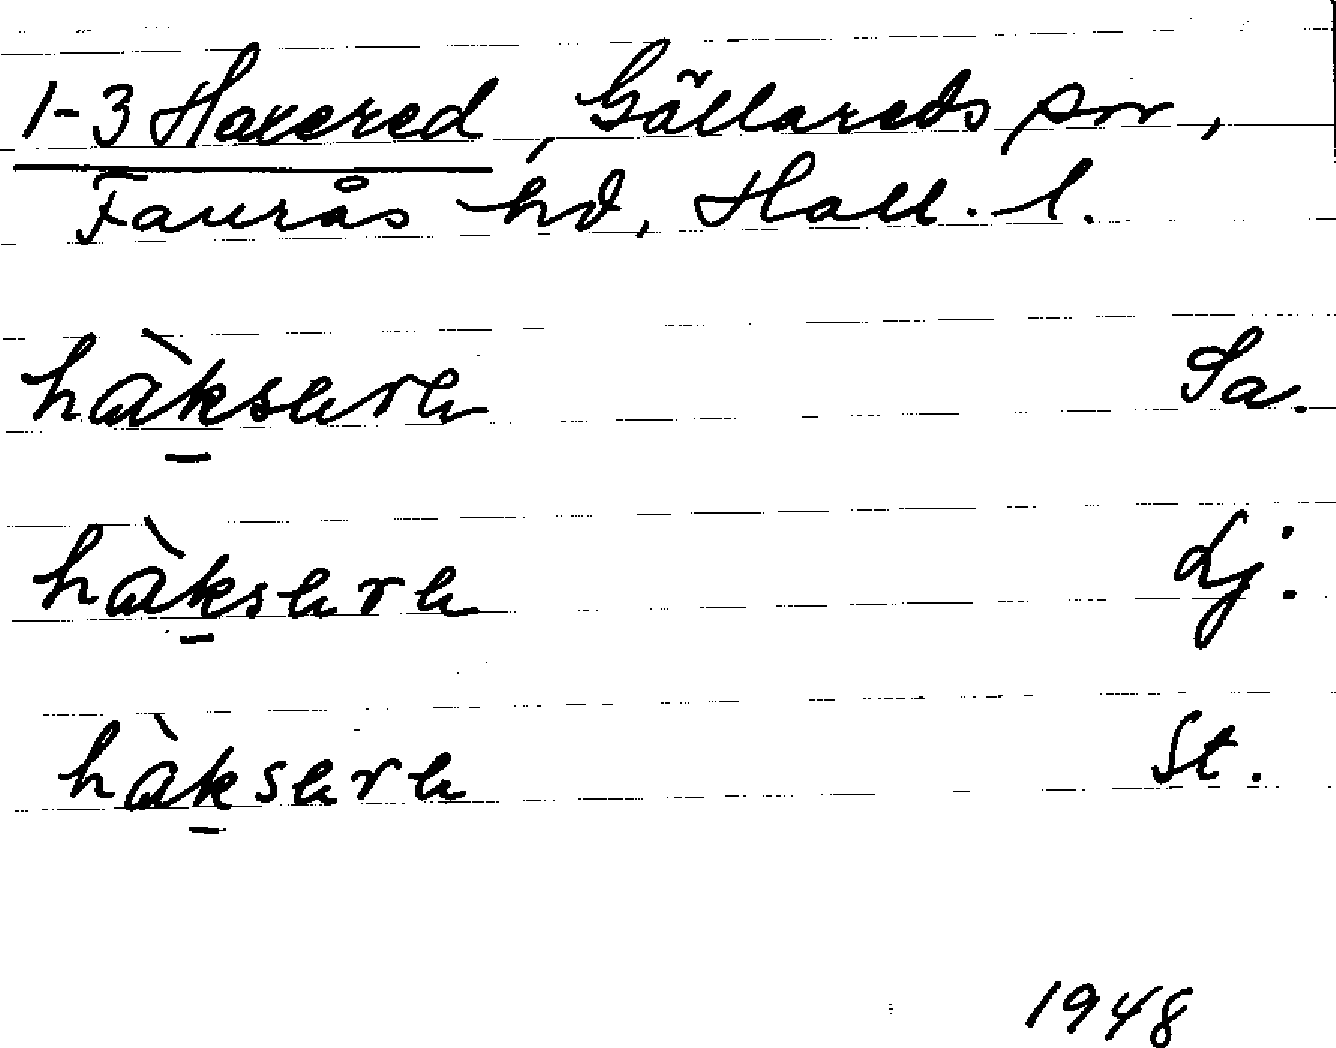 1-3 Haxered, Gällareds sn,
Faurås hd, Hall. l.
Sa.
Lj.
St.
1948